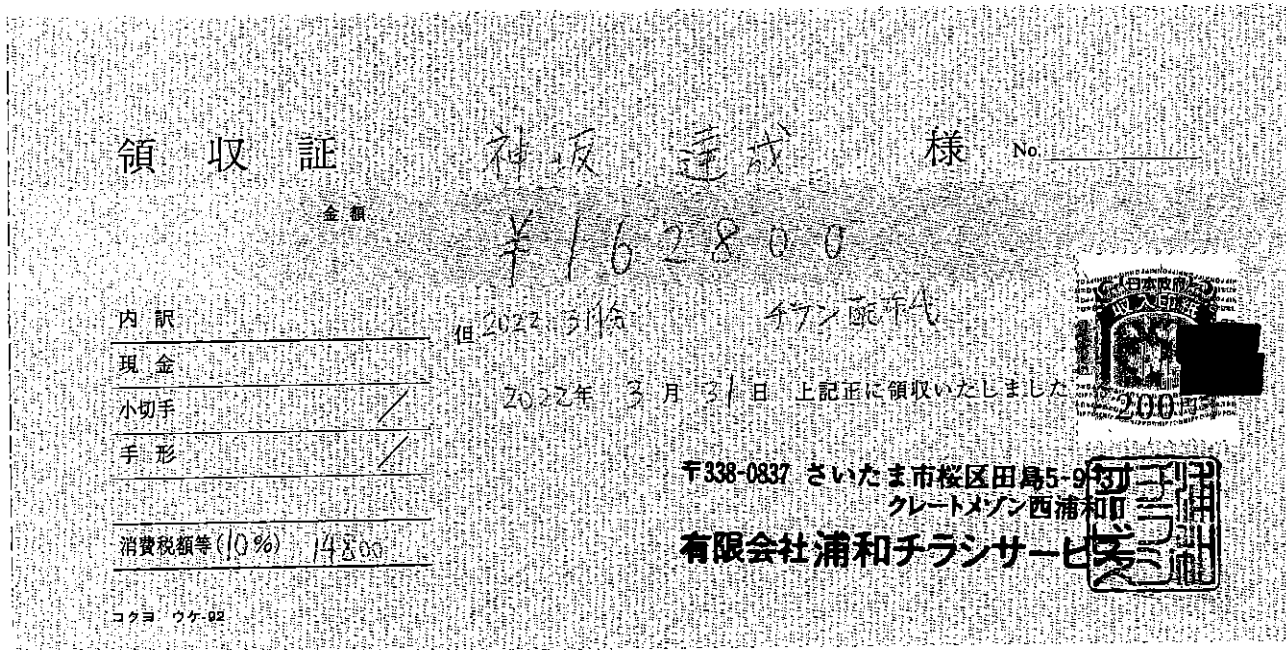 領収証 神坂 達成 様 No.
金額
¥162800
但 2022 3月分 チラシ配布代
2022年 3月 31日 上記正に領収いたしました
内訳
現金
小切手
手形
消費税額等(10%) 14800
日本政府
200円
〒338-0837 さいたま市桜区田島5-9
クレートメゾン西浦和
有限会社浦和チラシサービス
コクヨ ウケ-92